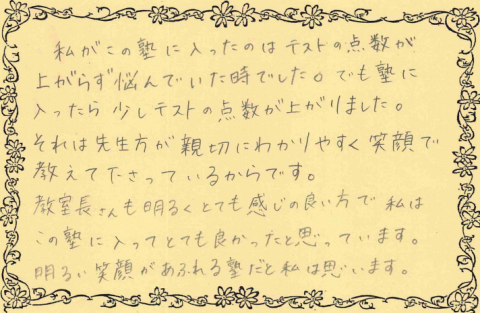 私がこの塾に入ったのはテストの点数が
上がらず悩んでいた時でした。でも塾に
入ったら少しテストの点数が上がりました。
それは先生方が親切にわかりやすく笑顔で
教えて下さっているからです。
教室長さんも明るくとても感じの良い方で私は
この塾に入ってとても良かったと思っています。
明るい笑顔があふれる塾だと私は思います。